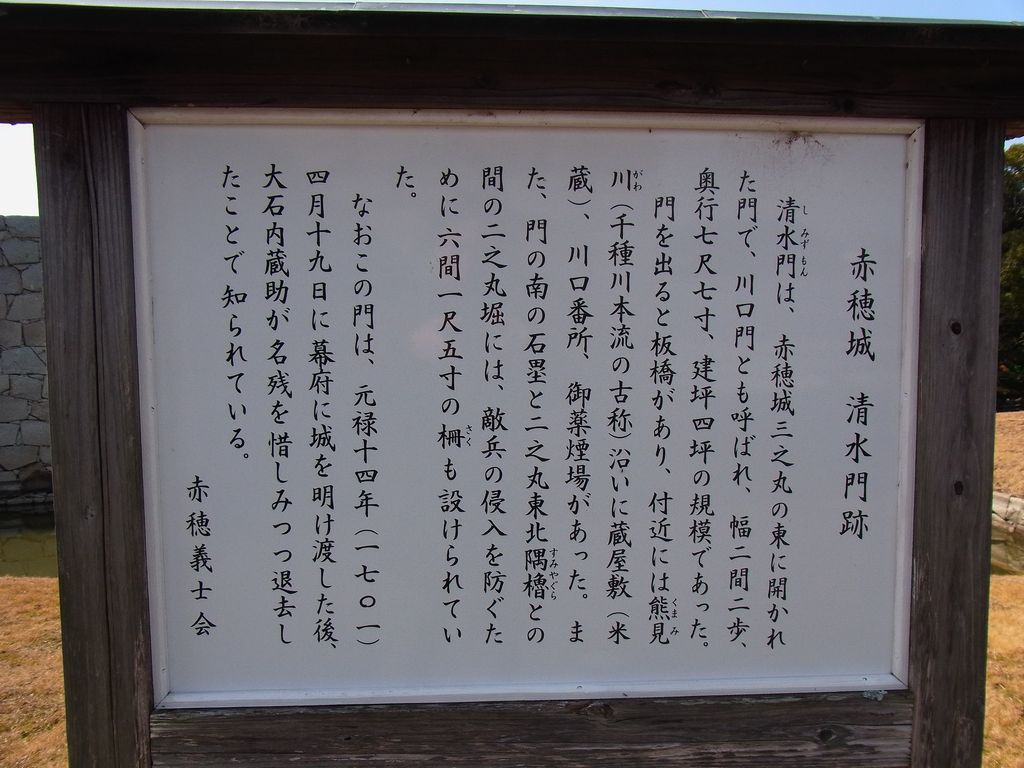 赤穂城　清水門跡
　清水門は、赤穂城三之丸の東に開かれ
しみずもん
た門で、川口門とも呼ばれ、幅二間二歩、
奥行七尺七寸、建坪四坪の規模であった。
　門を出ると板橋があり、付近には熊見
くまみ
川（千種川本流の古称）沿いに蔵屋敷（米
がわ
蔵）、川口番所、御薬煙場があった。ま
た、門の南の石塁と二之丸東北隅櫓との
すみやぐら
間の二之丸堀には、敵兵の侵入を防ぐた
めに六間一尺五寸の柵も設けられてい
さく
た。
　なおこの門は、元禄十四年（一七〇一）
四月十九日に幕府に城を明け渡した後、
大石内蔵助が名残を惜しみつつ退去し
たことで知られている。
赤穂義士会